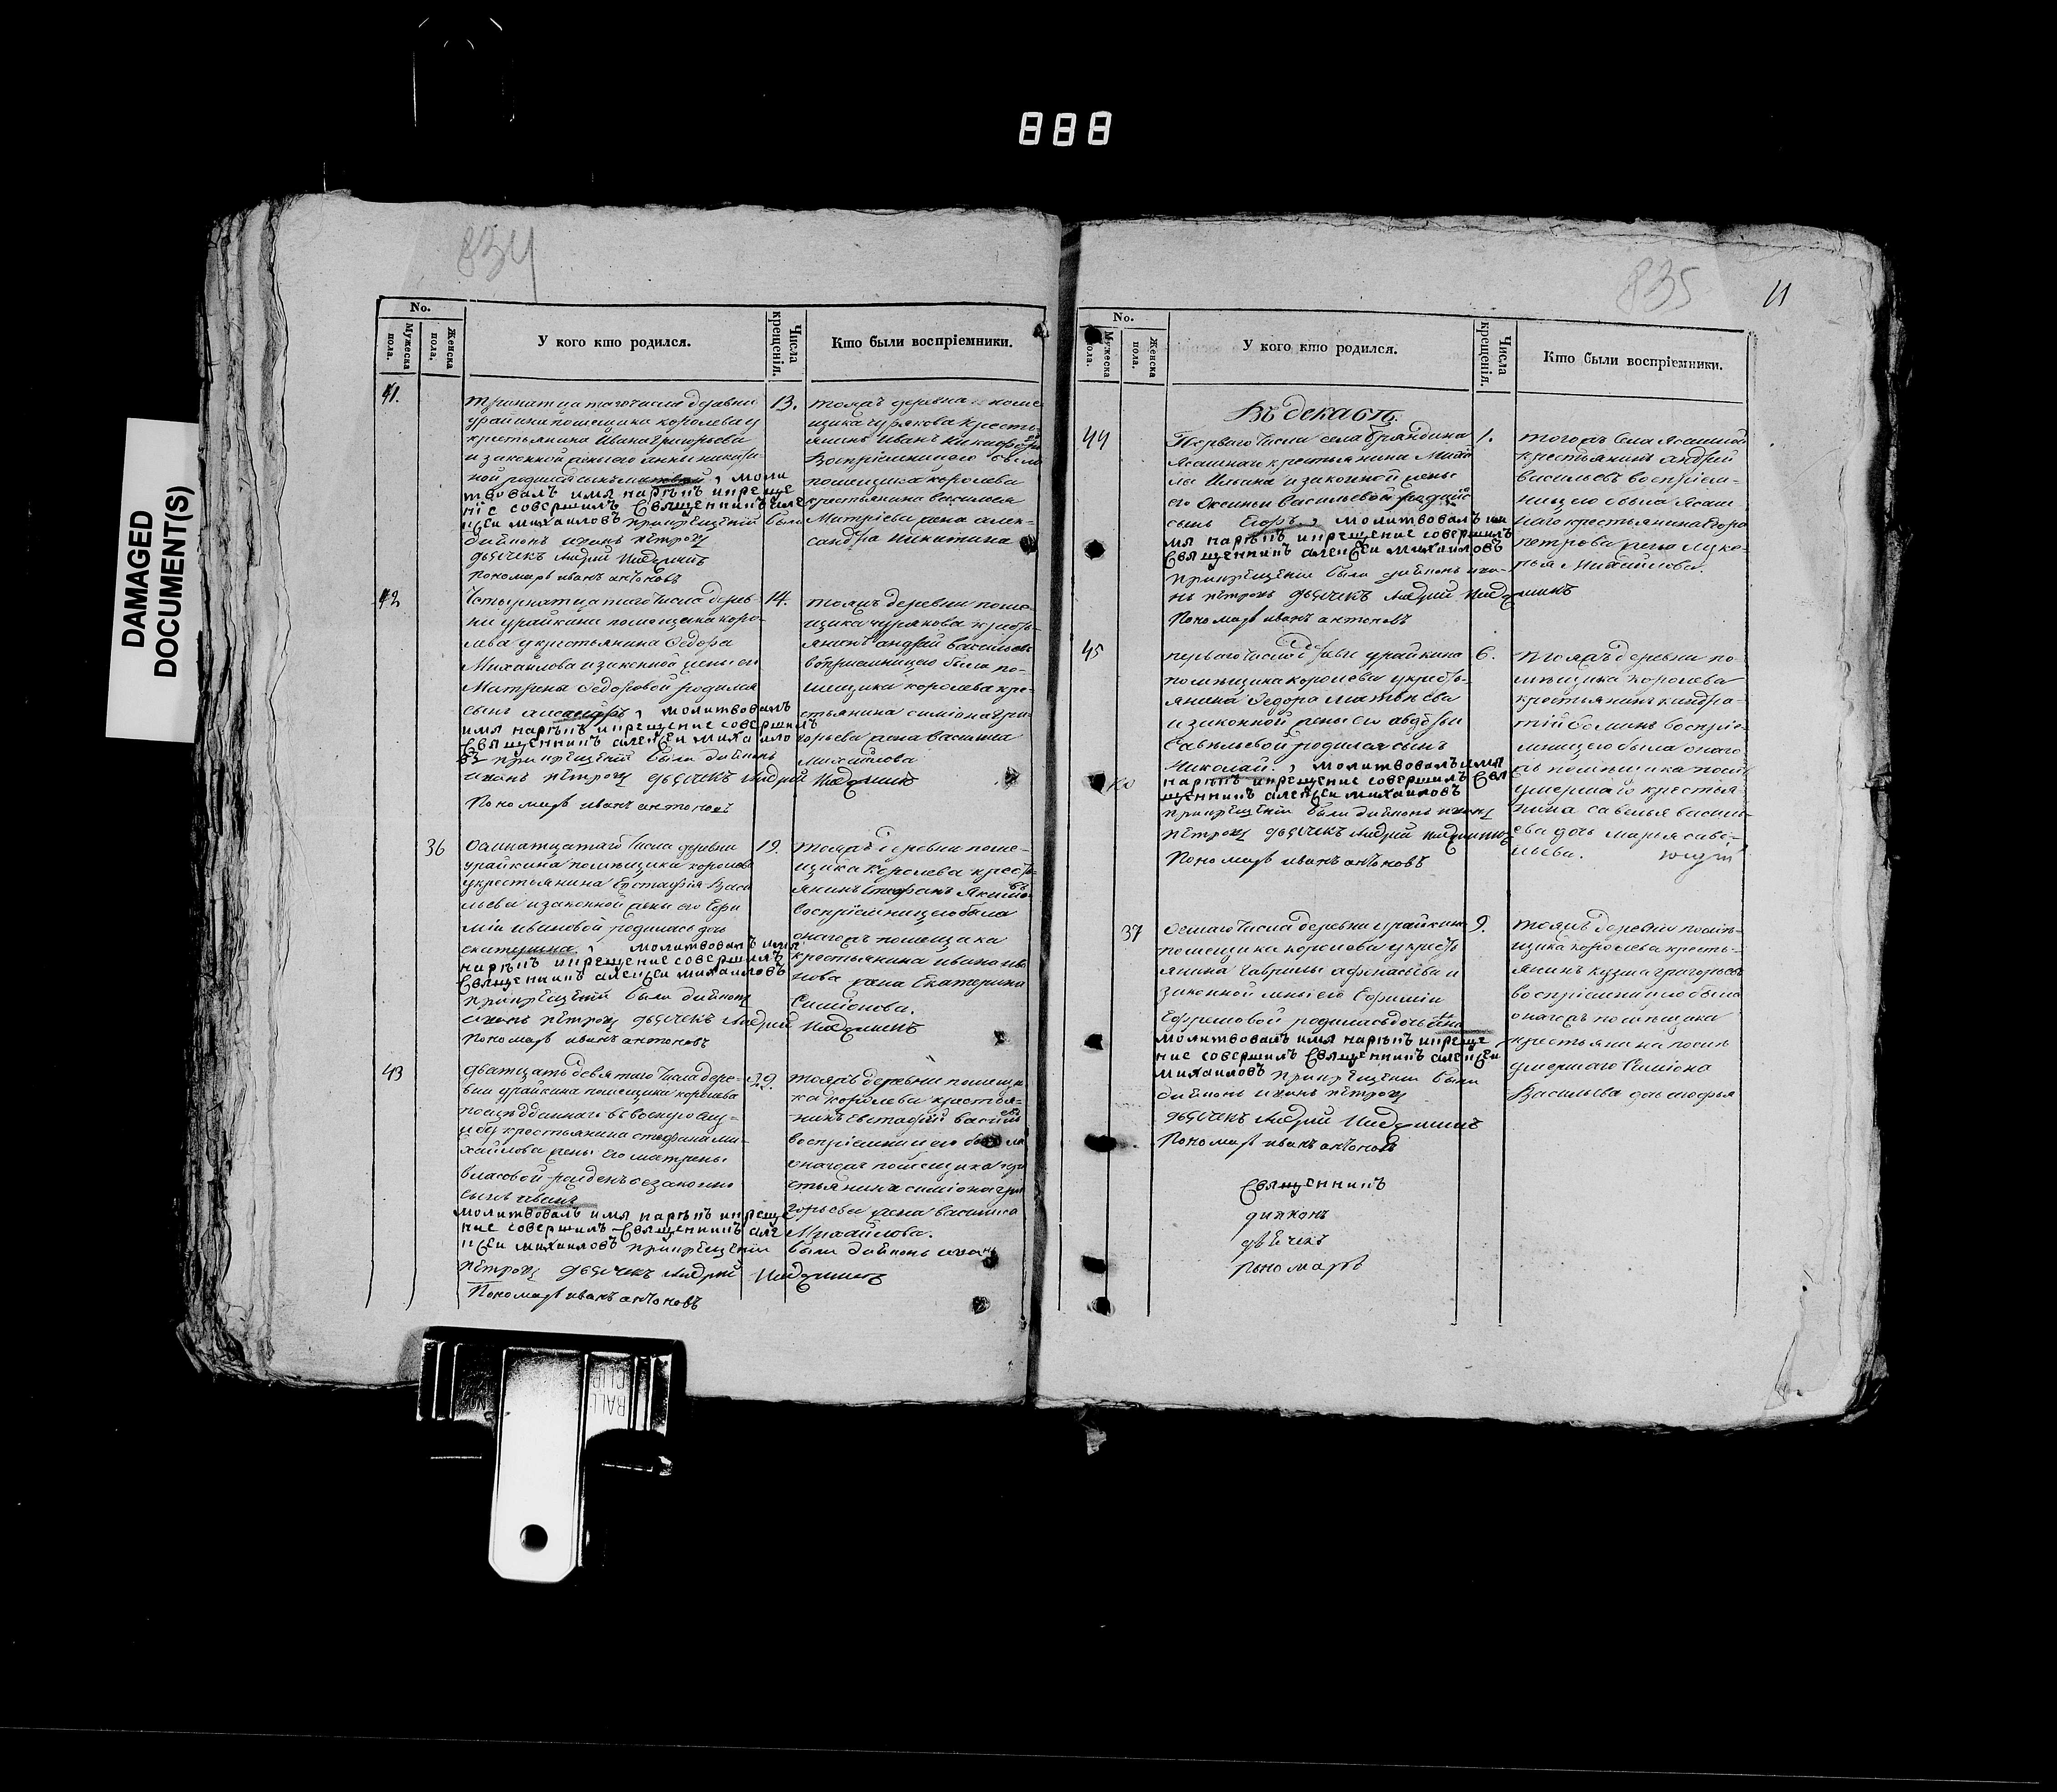 888
DAMAGED
DOCUMENT(S)
834
No.
Мужеска пола.
Женска пола.
У кого кто родился.
Числа крещенія.
Кто были воспріемники.
41.
тринатцатаго числа деревни
урайкина помещика королева у
крестьянина Ивана Григорьева
и законной жены его Анны никифо-
ной родился сынъ моли
твовалъ имя нарѣкъ икреще
ніе совершилъ Священникъ але
ксеи михаиловъ прикрещеніи были
дияконъ иванъ петровъ
дьячекъ Андрей
Пономарь иванъ антоновъ
13.
тояжъ деревни поме
щика чурякова кресть
янинъ Иванъ Никифоровъ
Воспріемницею была
помещика королева
крестьянина василья
Митріева жена алек-
сандра никитина
42
Четырнатцатаго числа дерев-
ни урайкина помещика коро-
лева у крестьянина Федора
Михайлова и законной жены ево
Матрены Федоровой родился
сынъ александръ, молитвовалъ
имя нарѣкъ икрещение совершилъ
Священникъ алексеи михаило
въ прикрещеніи были дияконъ
иванъ петровъ дьячекъ Андрей
Пономарь иванъ антоновъ
14.
тояжъ деревни поме-
щика чурякова кресть-
янинъ андрей васильевъ
воспріемницею была по-
мещика королева кре-
стьянина симіона гри-
горьева жена василиса
михайлова
36
Осмнатцатаго числа деревни
урайкина помѣщика королева
укрестьянина Евстафія Васи
льева и законной жены его Ефи
міи ивановой родилась дочь
екатерина, молитвовалъ имя
нарѣкъ икрещение совершилъ
Священникъ алексеи михаиловъ
прикрещеніи были дияконъ
иванъ петровъ дьячекъ Андрей
Пономарь иванъ антоновъ
19.
тояжъ деревни поме-
щика королева кресть-
янинъ Стефанъ Якимовъ
воспріемницею была
онагожъ помещика
крестьянина ивана ива
нова жена Екатерина
Симіонова.
43
дватцать девятаго числа дере-
вни урайкина помещика королева
поотдданнаго въ военную служ-
бу крестьянина стефана ми-
хайлова жены его матрены
власовой рожденъ беззаконно
сынъ иванъ
молитвовалъ имя нарѣкъ икреще
ние совершилъ Священникъ але
ксеи михаиловъ прикрещеніи были дияконъ иванъ
петровъ дьячекъ Андрей
Пономарь иванъ антоновъ
29.
тояжъ деревни помещи
ка королева крестья-
нинъ Евстафій васильевъ
воспріемницею была
онагожъ помещика кре
стьянина симіона гри
горьева жена василиса
Михайлова.
835
11
No.
Мужеска пола.
Женска пола.
У кого кто родился.
Числа крещенія.
Кто были воспріемники.
Въ декабрѣ
44
Перваго числа села брандина
Ясашнаго крестьянина Миха
ла Ильина и законной жены
его Оксиньи Васильевой родился
сынъ Егоръ, молитвовалъ и
мя нарѣкъ икрещение совершилъ
Священникъ алексеи михаиловъ
прикрещеніи были дияконъ ива-
нъ петровъ дьячекъ Андрей
Пономарь иванъ антоновъ
1.
тогожъ Села Ясашной
крестьянинъ андрей
васильевъ воспріем-
ницею была Ясаш
наго крестьянина Егора
петрова жена луке-
рья Михайлова.
45
перваго числа деревни урайкина
помѣщика королева укресть-
янина Федора Матвѣева
и законной жены его авдотьи
Савельевой родился сынъ
Николай, молитвовалъ имя
нарѣкъ икрещение совершилъ Свя
щенникъ алексеи михаиловъ
прикрещеніи были дияконъ иванъ
петровъ дьячекъ Андрей
Пономарь иванъ антоновъ
6.
тояжъ деревни по-
мѣщика королева
крестьянинъ кондра-
тій воспріе-
мницею была онаго
жъ помѣщика послѣ
умершаго крестья-
нина савелья василь-
ева дочь марья саве-
льева.
37
Осмаго числа деревни урайкина
помещика королева укресть
янина Гаврилы афонасьева и
законной жены его Ефиміи
Ефремовой родилась дочь анна
молитвовалъ имя нарѣкъ икреще
ние совершилъ Священникъ алексеи
михаиловъ прикрещеніи были
дияконъ иванъ петровъ
дьячекъ Андрей
Пономарь иванъ антоновъ
9.
тояжъ деревни помѣ-
щика королева кресть-
янинъ кузма григорьевъ
воспріемницею была
онагожъ помѣщика
крестьянина послѣ
умершаго Симіона
Васильева дочь софья
Священникъ
диаконъ
дьячекъ
пономарь